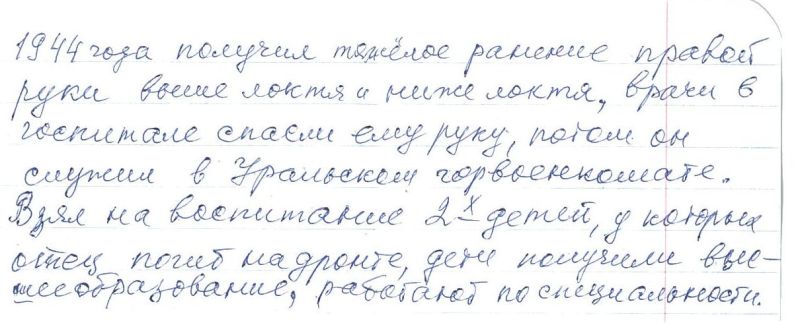 1944 года получил тяжёлое ранение правой
руки выше локтя и ниже локтя, врачи в
госпитале спасли ему руку, потом он
служил в Уральском горвоенкомате.
Взял на воспитание 2х детей, у которых
отец погиб на фронте, дети получили выс-
шее образование, работают по специальности.